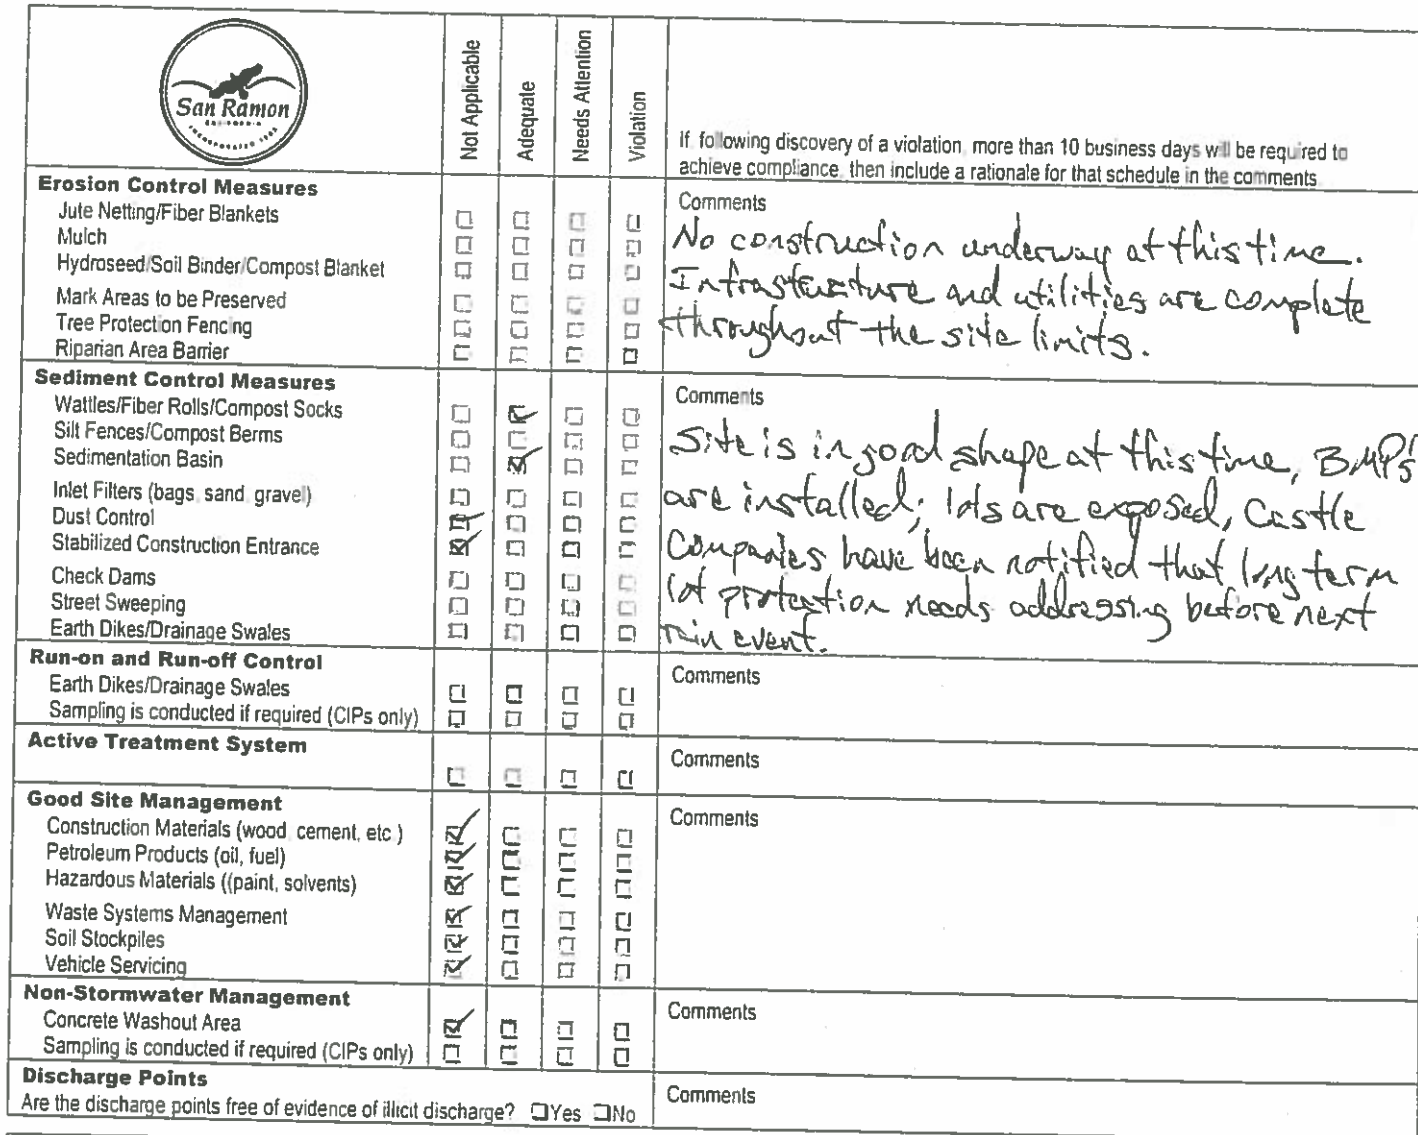 San Ramon
CALIFORNIA
INCORPORATED 1983
Not Applicable
Adequate
Needs Attention
Violation
If, following discovery of a violation, more than 10 business days will be required to
achieve compliance, then include a rationale for that schedule in the comments
Erosion Control Measures
Jute Netting/Fiber Blankets
Mulch
Hydroseed/Soil Binder/Compost Blanket
Mark Areas to be Preserved
Tree Protection Fencing
Riparian Area Barrier
Comments
No construction underway at this time.
Infrastructure and utilities are complete
throughout the site limits.
Sediment Control Measures
Wattles/Fiber Rolls/Compost Socks
Silt Fences/Compost Berms
Sedimentation Basin
Inlet Filters (bags, sand, gravel)
Dust Control
Stabilized Construction Entrance
Check Dams
Street Sweeping
Earth Dikes/Drainage Swales
Comments
Site is in good shape at this time, BMP's
are installed; lots are exposed, Castle
Companies have been notified that long term
lot protection needs addressing before next
rain event.
Run-on and Run-off Control
Earth Dikes/Drainage Swales
Sampling is conducted if required (CIPs only)
Comments
Active Treatment System
Comments
Good Site Management
Construction Materials (wood, cement, etc.)
Petroleum Products (oil, fuel)
Hazardous Materials ((paint, solvents)
Waste Systems Management
Soil Stockpiles
Vehicle Servicing
Comments
Non-Stormwater Management
Concrete Washout Area
Sampling is conducted if required (CIPs only)
Comments
Discharge Points
Are the discharge points free of evidence of illicit discharge? ❑Yes ❑No
Comments